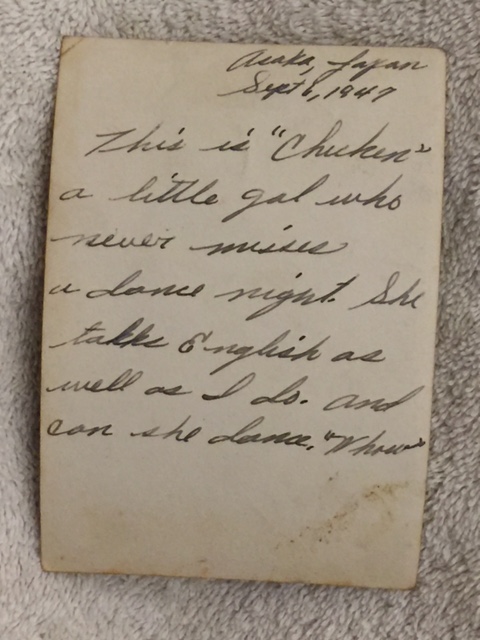 Asaka, Japan
Sept 6, 1947
This is "Chicken"
a little gal who
never misses
a dance night. She
talks English as
well as I do. and
can she dance. "Whow"